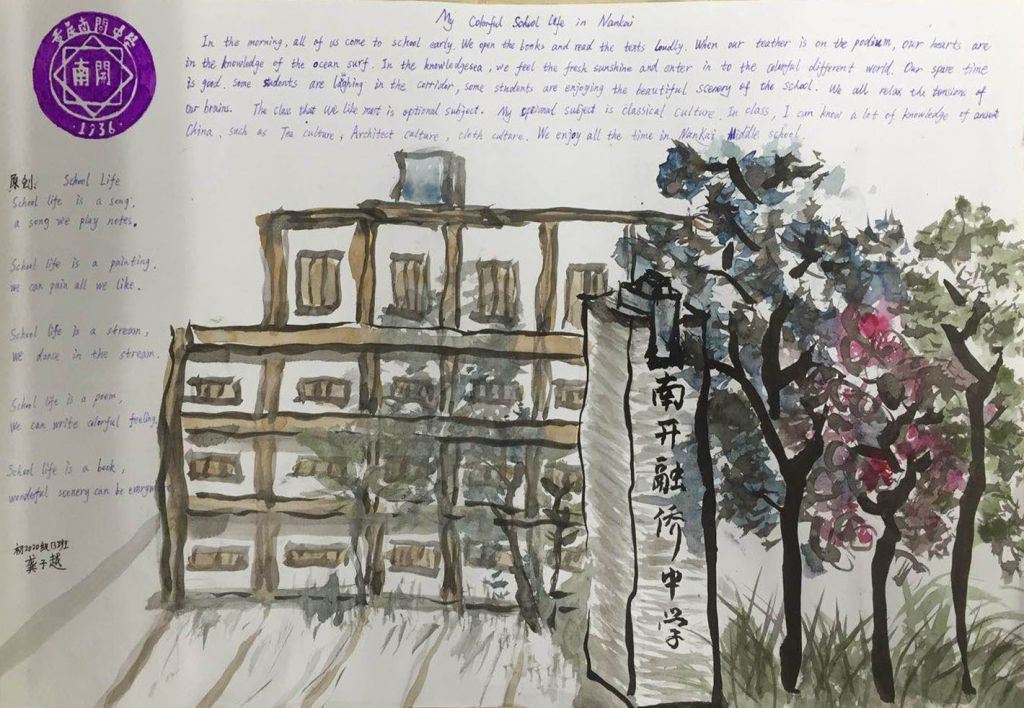 重庆南開中學
南開
·1936·
My Colorful School Life in Nankai
In the morning, all of us come to school early. We open the books and read the texts loudly. When our teather is on the podium, our hearts are
in the knowledge of the ocean surf. In the knowledgesea, we feel the fresh sunshine and enter in to the colorful different world. Our spare time
is good. some students are laghing in the corridor, some students are enjoying the beautiful scenery of the school. We all relax the tensions of
our brains. The class that we like most is optional subject. My optional subject is classical culture. In class, I can know a lot of knowledge of
China, such as Tea culture, Architect culture, cloth culture. We enjoy all the time in NanKai Middle school.
原创: School Life
School life is a song,
a song we play notes.
School life is a painting,
we can pain all we like.
School life is a stream,
We dance in the stream.
School life is a poem,
We can write colorful feeling.
School life is a book,
wonderful scenery can be
初2020级13班
龚子越
南开融侨中学